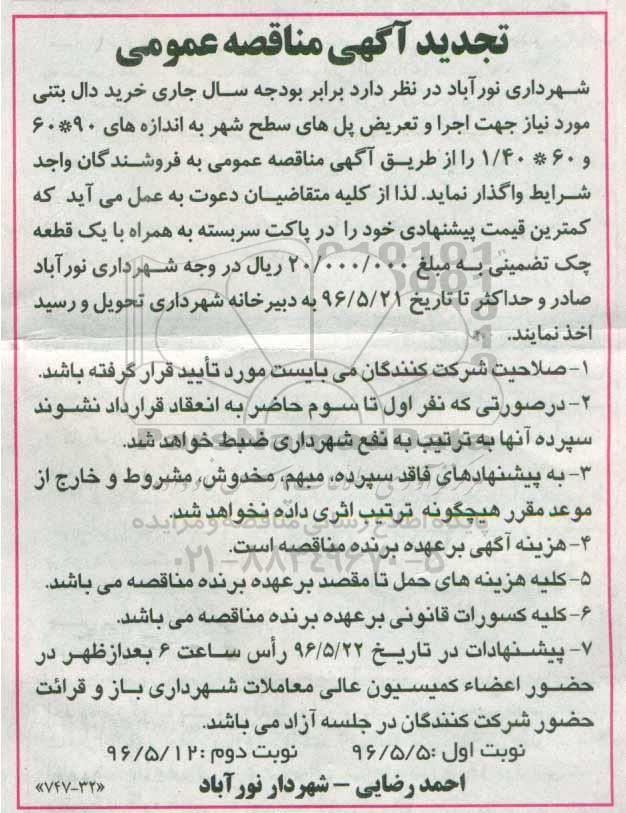 تجدید آگهی مناقصه عمومی
شهرداری نورآباد در نظر دارد برابر بودجه سال جاری خرید دال بتنی
مورد نیاز جهت اجرا و تعریض پل های سطح شهر به اندازه های ۹۰*۶۰
و ۶۰ * ۱/۴۰ را از طریق آگهی مناقصه عمومی به فروشندگان واجد
شرایط واگذار نماید. لذا از کلیه متقاضیان دعوت به عمل می آید که
کمترین قیمت پیشنهادی خود را در پاکت سربسته به همراه با یک قطعه
چک تضمینی به مبلغ ۲۰/۰۰۰/۰۰۰ ریال در وجه شهرداری نورآباد
صادر و حداکثر تا تاریخ ۹۶/۵/۲۱ به دبیرخانه شهرداری تحویل و رسید
اخذ نمایند.
۱-صلاحیت شرکت کنندگان می بایست مورد تأیید قرار گرفته باشد.
۲-درصورتی که نفر اول تا سوم حاضر به انعقاد قرارداد نشوند
سپرده آنها به ترتیب به نفع شهرداری ضبط خواهد شد.
۳- به پیشنهادهای فاقد سپرده، مبهم، مخدوش، مشروط و خارج از
موعد مقرر هیچگونه ترتیب اثری داده نخواهد شد.
پایگاه اطلاع رسانی مناقصه و مزایده
۴-هزینه آگهی برعهده برنده مناقصه است.
۰۲۱-۸۸۳۴۹۶۷۰-۵
۵-کلیه هزینه های حمل تا مقصد برعهده برنده مناقصه می باشد.
۶-کلیه کسورات قانونی برعهده برنده مناقصه می باشد.
۷- پیشنهادات در تاریخ ۹۶/۵/۲۲ رأس ساعت ۶ بعدازظهر در
حضور اعضاء کمیسیون عالی معاملات شهرداری باز و قرائت
حضور شرکت کنندگان در جلسه آزاد می باشد.
نوبت اول :۹۶/۵/۵ نوبت دوم :۹۶/۵/۱۲
احمد رضایی – شهردار نورآباد «۷۴۷-۳۲»